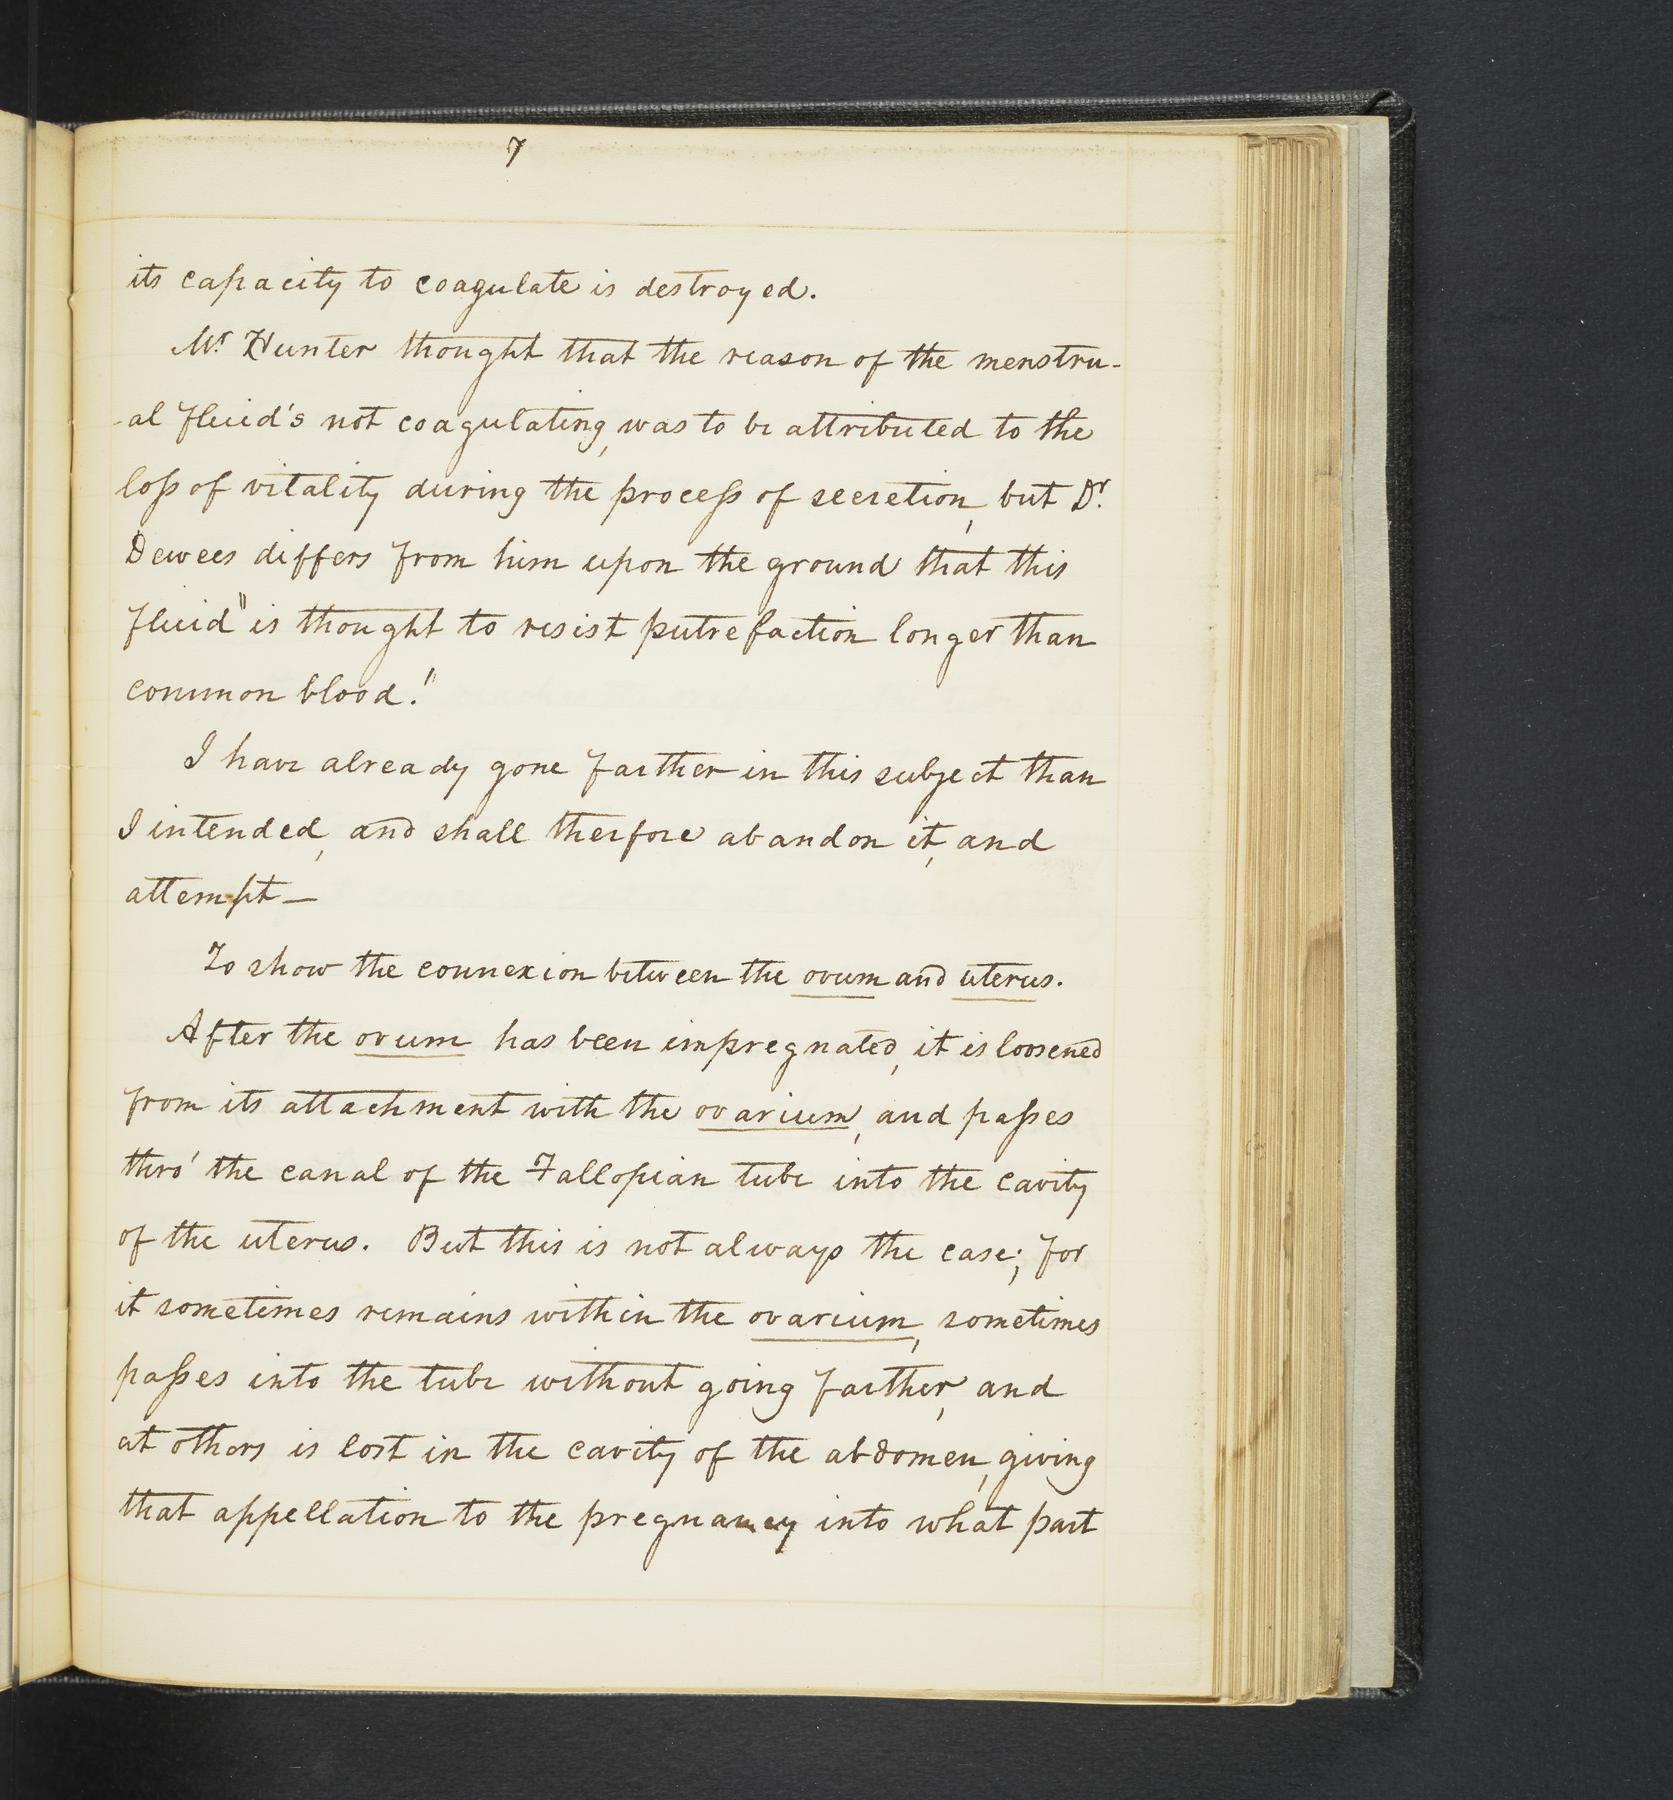 7
its capacity to coagulate is destroyed.
Mr. Hunter thought that the reason of the menstru-
-al fluid's not coagulating, was to be attributed to the
loss of vitality during the process of secretion, but Dr.
Dewees differs from him upon the ground that this
fluid "is thought to resist putrefaction longer than
common blood."
I have already gone farther in this subject than
I intended, and shall therfore abandon it, and
attempt—
To show the connexion between the ovum and uterus.
After the ovum has been impregnated, it is loosened
from its attachment with the ovarium, and passes
thro' the canal of the Fallopian tube into the cavity
of the uterus. But this is not always the case; for
it sometimes remains within the ovarium, sometimes
passes into the tube without going farther, and
at others is lost in the cavity of the abdomen, giving
that appellation to the pregnancy into what part